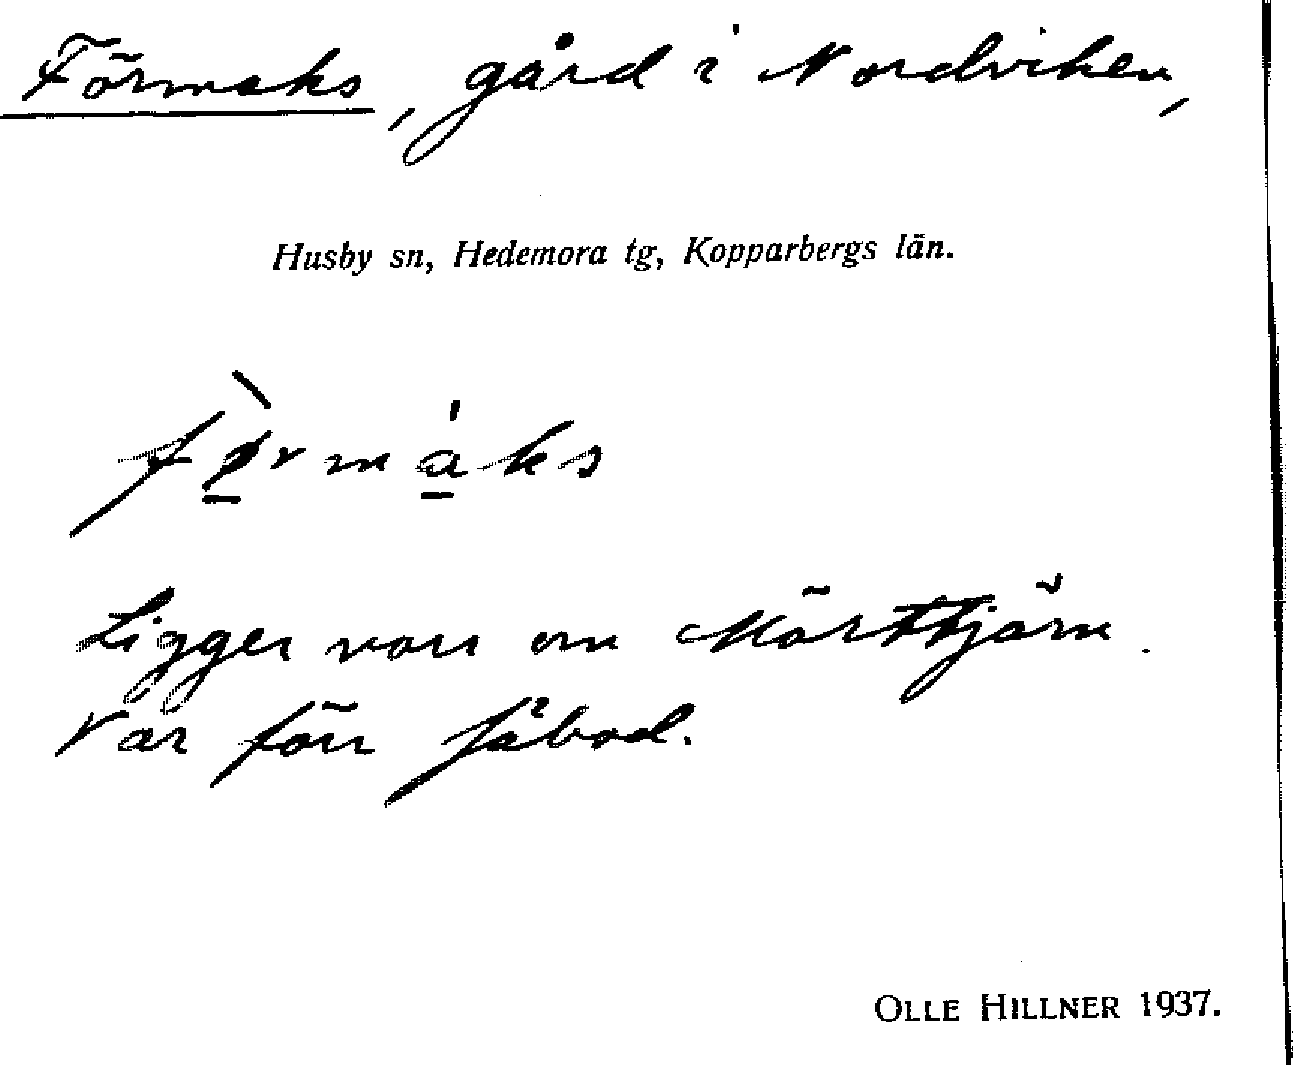 Förmaks, gård i Nordviken,
Husby sn, Hedemora tg, Kopparbergs län.
fø̀rmáks
Ligger norr om Mörttjärn.
Var förr fäbod.
OLLE HILLNER 1937.